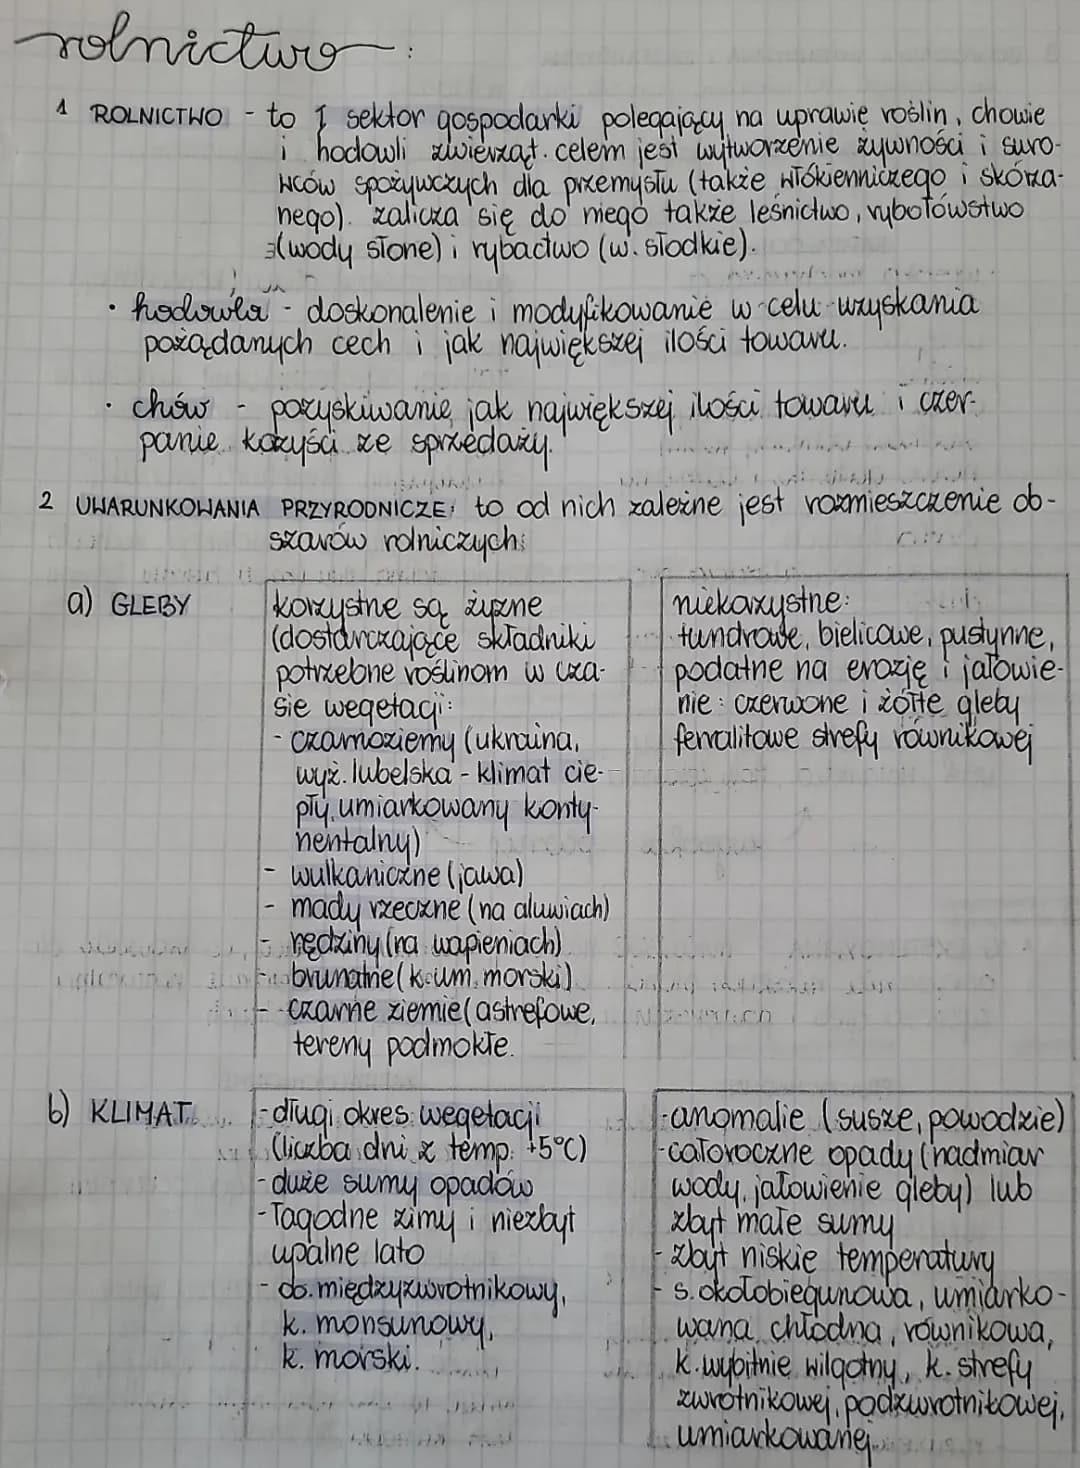 rolnictwo:
1 ROLNICTWO - to I sektor gospodarki polegający na uprawie roślin, chowie
i hodowli zwierząt. celem jest wytworzenie żywności i suro-
wców spożywczych dla przemysłu (także włókienniczego i skórza-
nego). zalicza się do niego także leśnictwo, rybołówstwo
(wody słone) i rybactwo (w. słodkie).
• hodowla - doskonalenie i modyfikowanie w celu uzyskania
pożądanych cech i jak największej ilości towaru.
• chów - pozyskiwanie jak największej ilości towaru i czer-
panie korzyści ze sprzedaży.
2 UWARUNKOWANIA PRZYRODNICZE: to od nich zależne jest rozmieszczenie ob-
szarów rolniczych:
a) GLEBY
korzystne są żyzne
(dostarczające składniki
potrzebne roślinom w cza-
sie wegetacji:
- czarnoziemy (ukraina,
wyż. lubelska - klimat cie-
pły, umiarkowany konty-
nentalny)
- wulkaniczne (jawa)
- mady rzeczne (na aluwiach)
- rędziny (na wapieniach)
- brunatne (k. um. morski)
- czarne ziemie (astrefowe,
tereny podmokłe.
niekorzystne:
tundrowe, bielicowe, pustynne,
podatne na erozję i jałowie-
nie: czerwone i żółte gleby
ferralitowe strefy równikowej
b) KLIMAT
- długi okres wegetacji
(liczba dni z temp. +5°C)
- duże sumy opadów
- łagodne zimy i niezbyt
upalne lato
- ob. międzyzwrotnikowy,
k. monsunowy,
k. morski.
- anomalie (susze, powodzie)
- całoroczne opady (nadmiar
wody, jałowienie gleby) lub
zbyt małe sumy
- zbyt niskie temperatury
- s. okołobiegunowa, umiarko-
wana chłodna, równikowa,
k. wybitnie wilgotny, k. strefy
zwrotnikowej, podzwrotnikowej,
umiarkowanej.